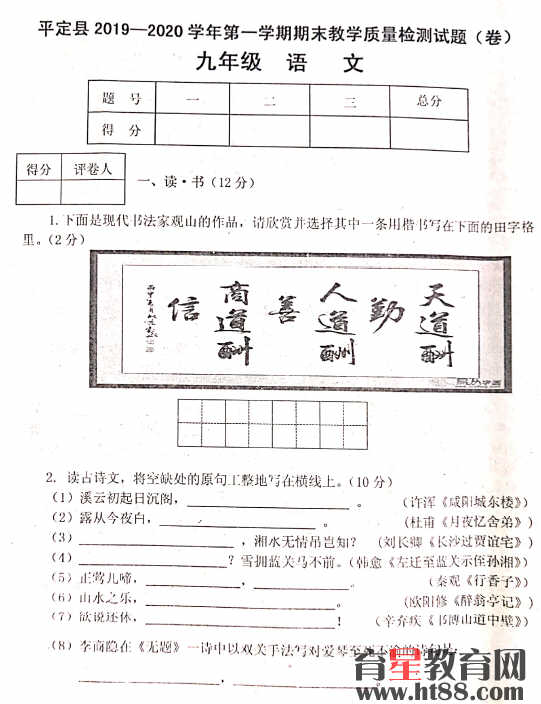 平定县2019—2020学年第一学期期末教学质量检测试题（卷）
九年级 语 文
题 号 一 二 三 总分
得 分
得分 评卷人
一、读·书（12分）
1.下面是现代书法家观山的作品，请欣赏并选择其中一条用楷书写在下面的田字格
里。（2分）
天道酬勤
人道酬善
商道酬信
2. 读古诗文，将空缺处的原句工整地写在横线上。（10分）
（1）溪云初起日沉阁，____________________。 （许浑《咸阳城东楼》）
（2）露从今夜白，____________________。 （杜甫《月夜忆舍弟》）
（3）____________________，湘水无情吊岂知？ （刘长卿《长沙过贾谊宅》）
（4）____________________？雪拥蓝关马不前。（韩愈《左迁至蓝关示侄孙湘》）
（5）正莺儿啼，____________，____________。 （秦观《行香子》）
（6）山水之乐，____________________。 （欧阳修《醉翁亭记》）
（7）欲说还休，____________________！ （辛弃疾《书博山道中壁》）
（8）李商隐在《无题》一诗中以双关手法写对爱琴至死不渝的诗句是：
____________________，____________________。
育星教育网
www.ht88.com